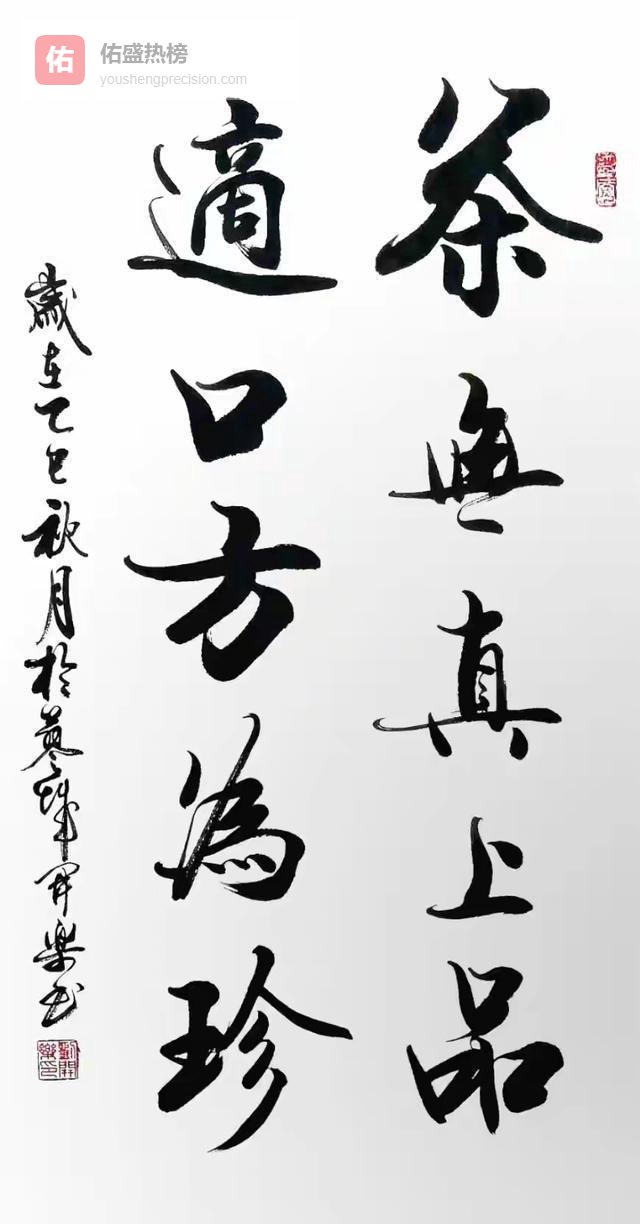 佑盛热榜
youshengprecision.com
茶無真上品
適口方為珍
歲在乙巳秋月於蓉城開樂书
劉開樂印